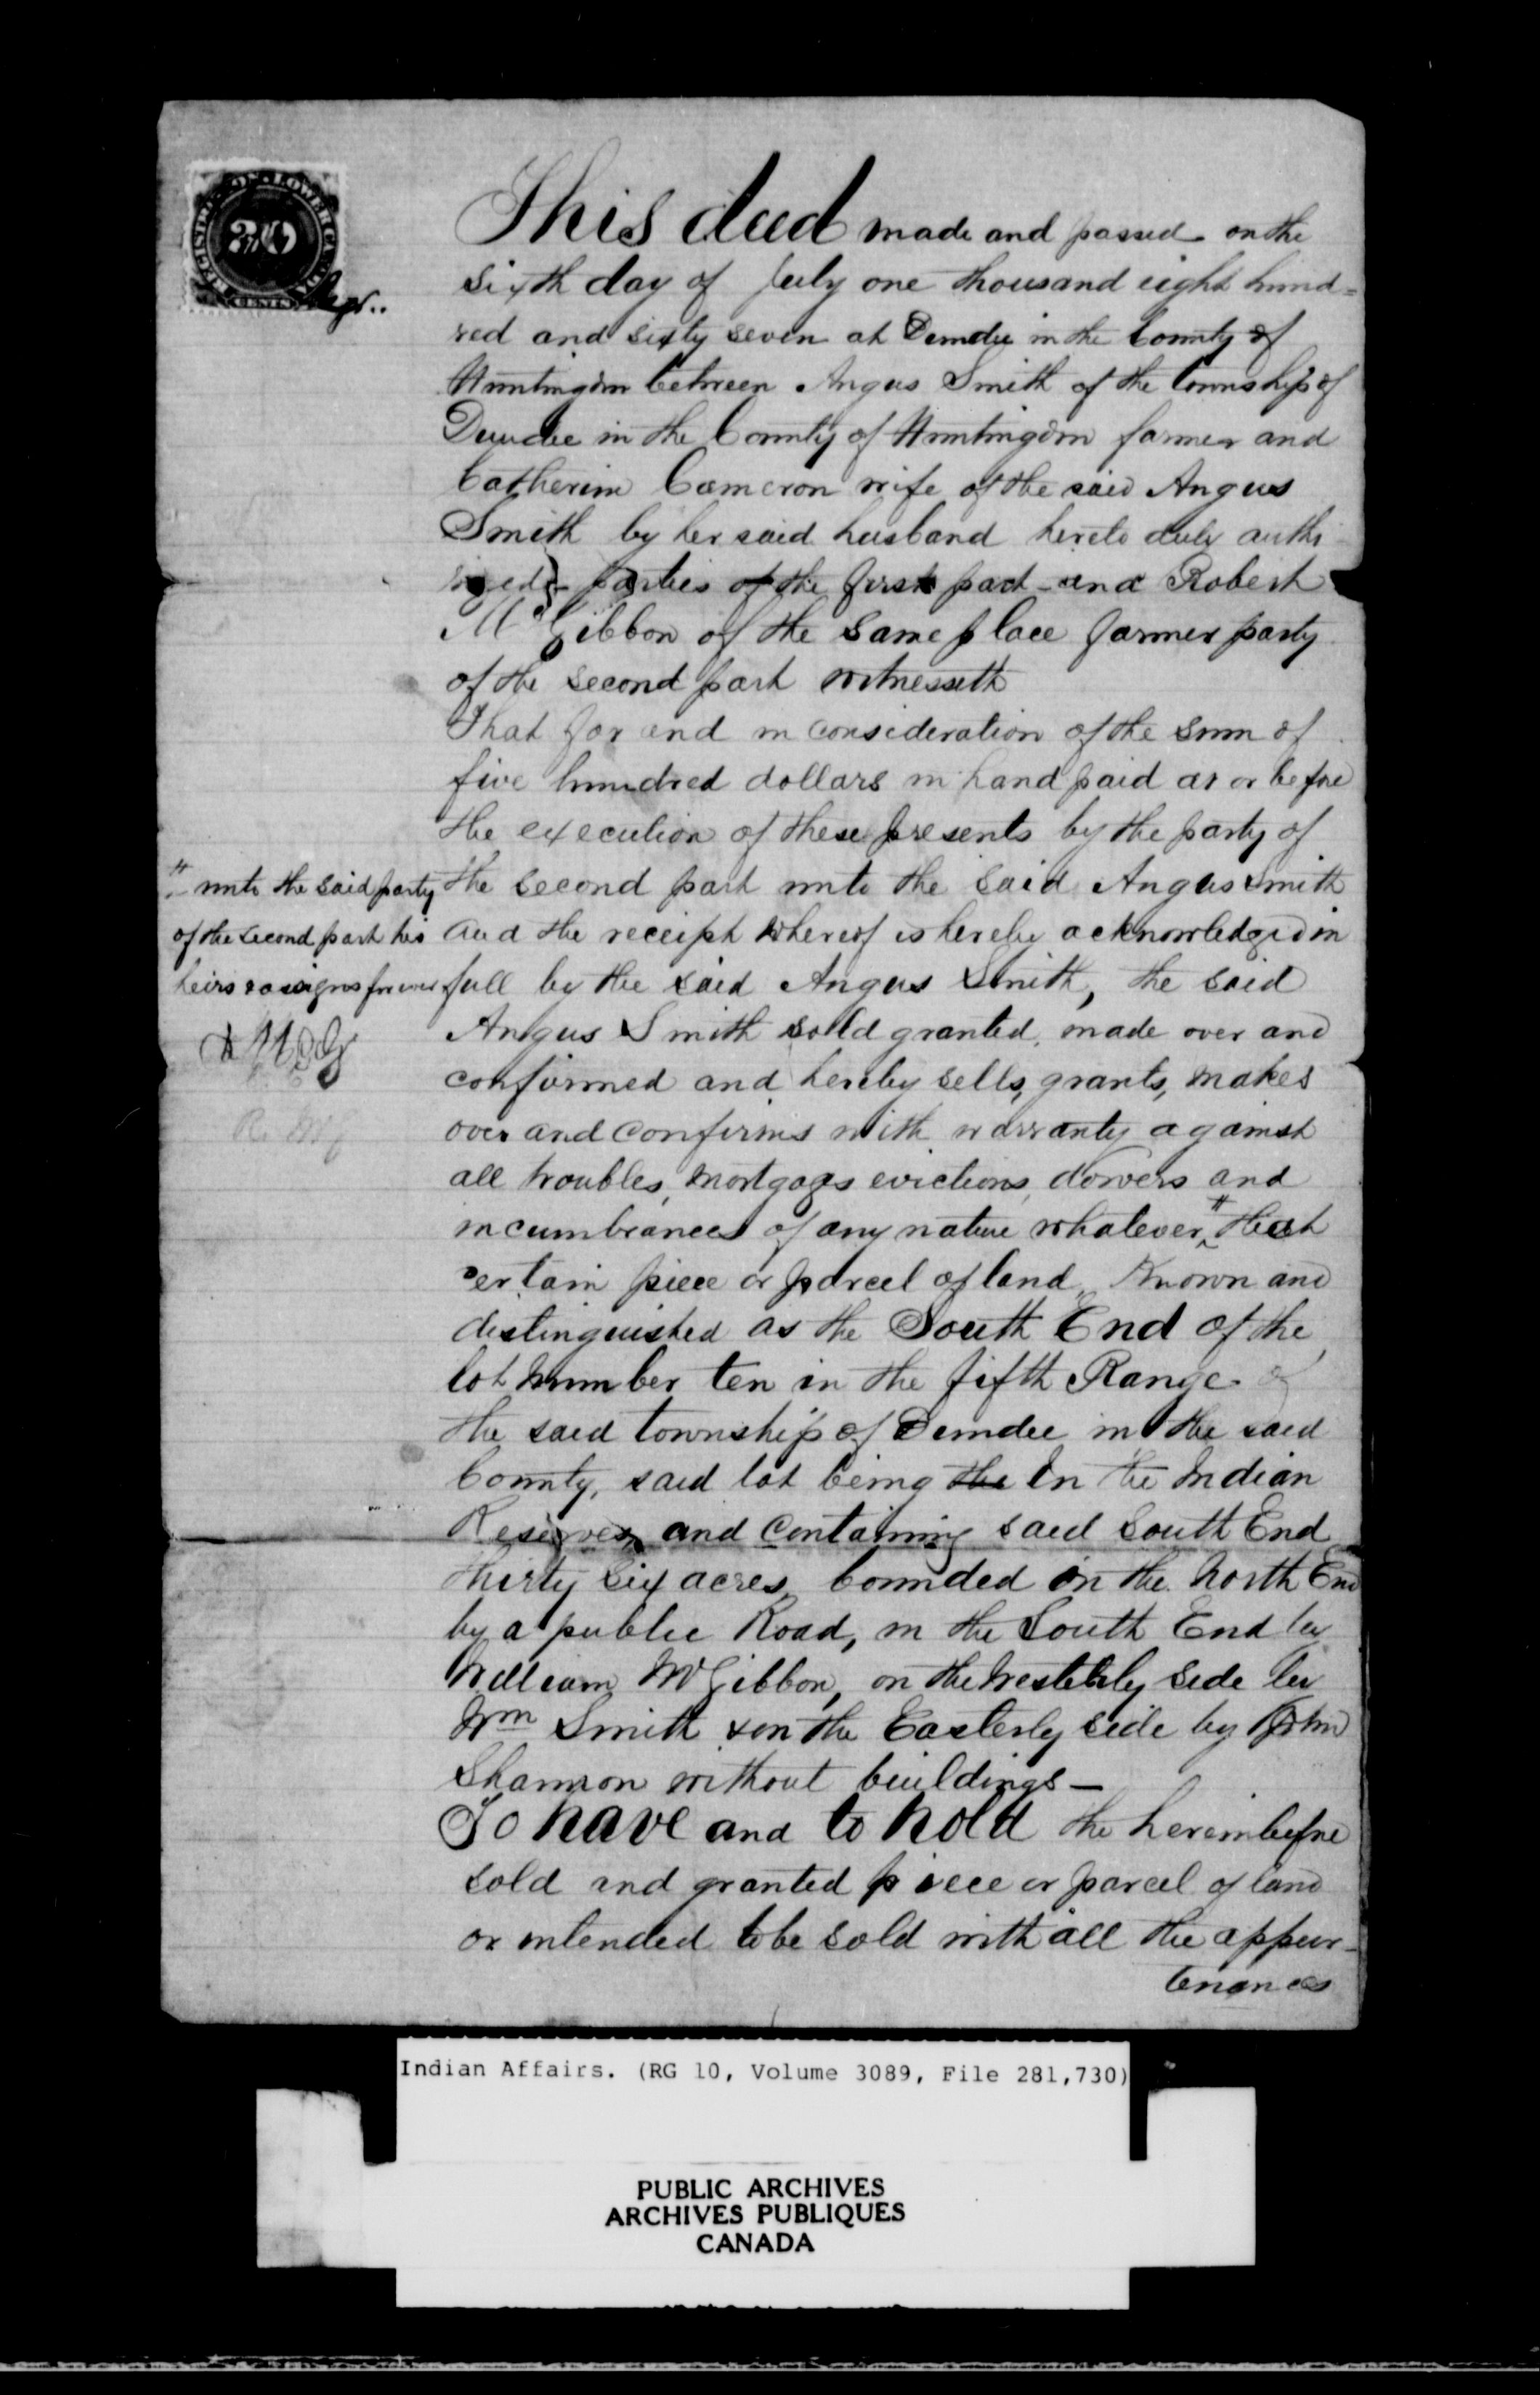 REGISTRATION LOWER CANADA
30
CENTS
This deed made and passed on the
sixth day of July one thousand eight hund=
red and sixty seven at Dundee in the County of
Huntingdon between Angus Smith of the township of
Dundee in the County of Huntingdon farmer and
Catherine Cameron wife of the said Angus
Smith by her said husband hereto duly autho
rized} parties of the first part - and Robert
McGibbon of the same place farmer party
of the second part witnesseth
That for and in consideration of the sum of
five hundred dollars in hand paid at or before
the execution of these presents by the party of
the second part unto the said Angus Smith
and the receipt whereof is hereby acknowledged in
full by the said Angus Smith, the said
Angus Smith sold granted, made over and
confirmed and hereby sells, grants, makes
over and confirms with warranty against
all troubles, mortgages evictions, dowers and
incumbrances of any nature whatever, " that
certain piece or parcel of land, known and
distinguished as the South End of the
lot number ten in the fifth Range of
the said township of Dundee in the said
County, said lot being the in the Indian
Reserves, and containing said South End
thirty six acres, bounded on the North End
by a public Road, on the South End by
William McGibbon, on the Westerly side by
Wm Smith & on the Easterly side by John
Shannon without buildings —
To have and to hold the hereinbefore
sold and granted piece or parcel of land
or intended to be sold with all the appur-
tenances
" unto the said party
of the second part his
heirs & assigns forever
R. McG
Indian Affairs. (RG 10, Volume 3089, File 281,730)
PUBLIC ARCHIVES
ARCHIVES PUBLIQUES
CANADA